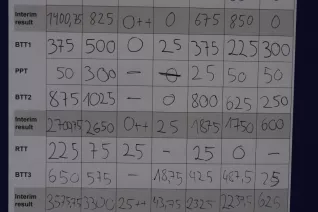 Interim result 1400,75 825 0++ 0 675 850 0
BTT1 375 500 0 25 375 225 300
PPT 50 300 - 0 25 50 50
BTT2 875 1025 - 0 800 625 250
Interim result 2700,75 2650 0++ 25 1875 1750 600
RTT 225 75 25 - 25 0 -
BTT3 650 575 - 18,75 425 487,5 25
Interim result 3575,75 3300 25++ 43,75 2325 2237,5 625